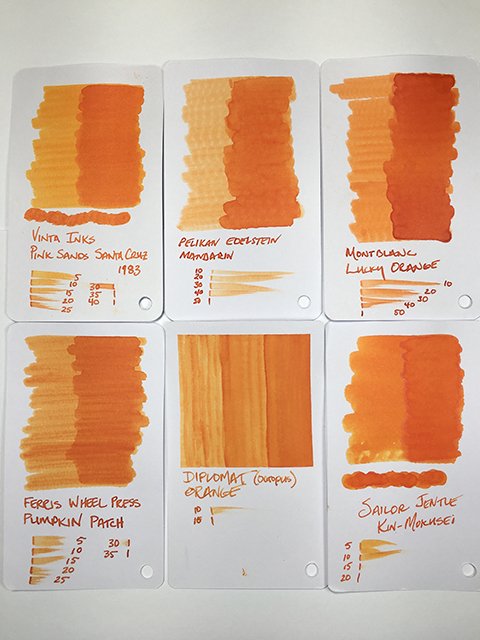 VINTA INKS
PINK SANDS SANTA CRUZ
1983
5
10
15
20
25
30
35
40
PELIKAN EDELSTEIN
MANDARIN
10
20
30
40
50
MONTBLANC
LUCKY ORANGE
10
20
30
40
50
FERRIS WHEEL PRESS
PUMPKIN PATCH
5
10
15
20
25
30
35
DIPLOMAT (OCTOPUS)
ORANGE
10
15
SAILOR JENTLE
KIN-MOKUSEI
5
10
15
20